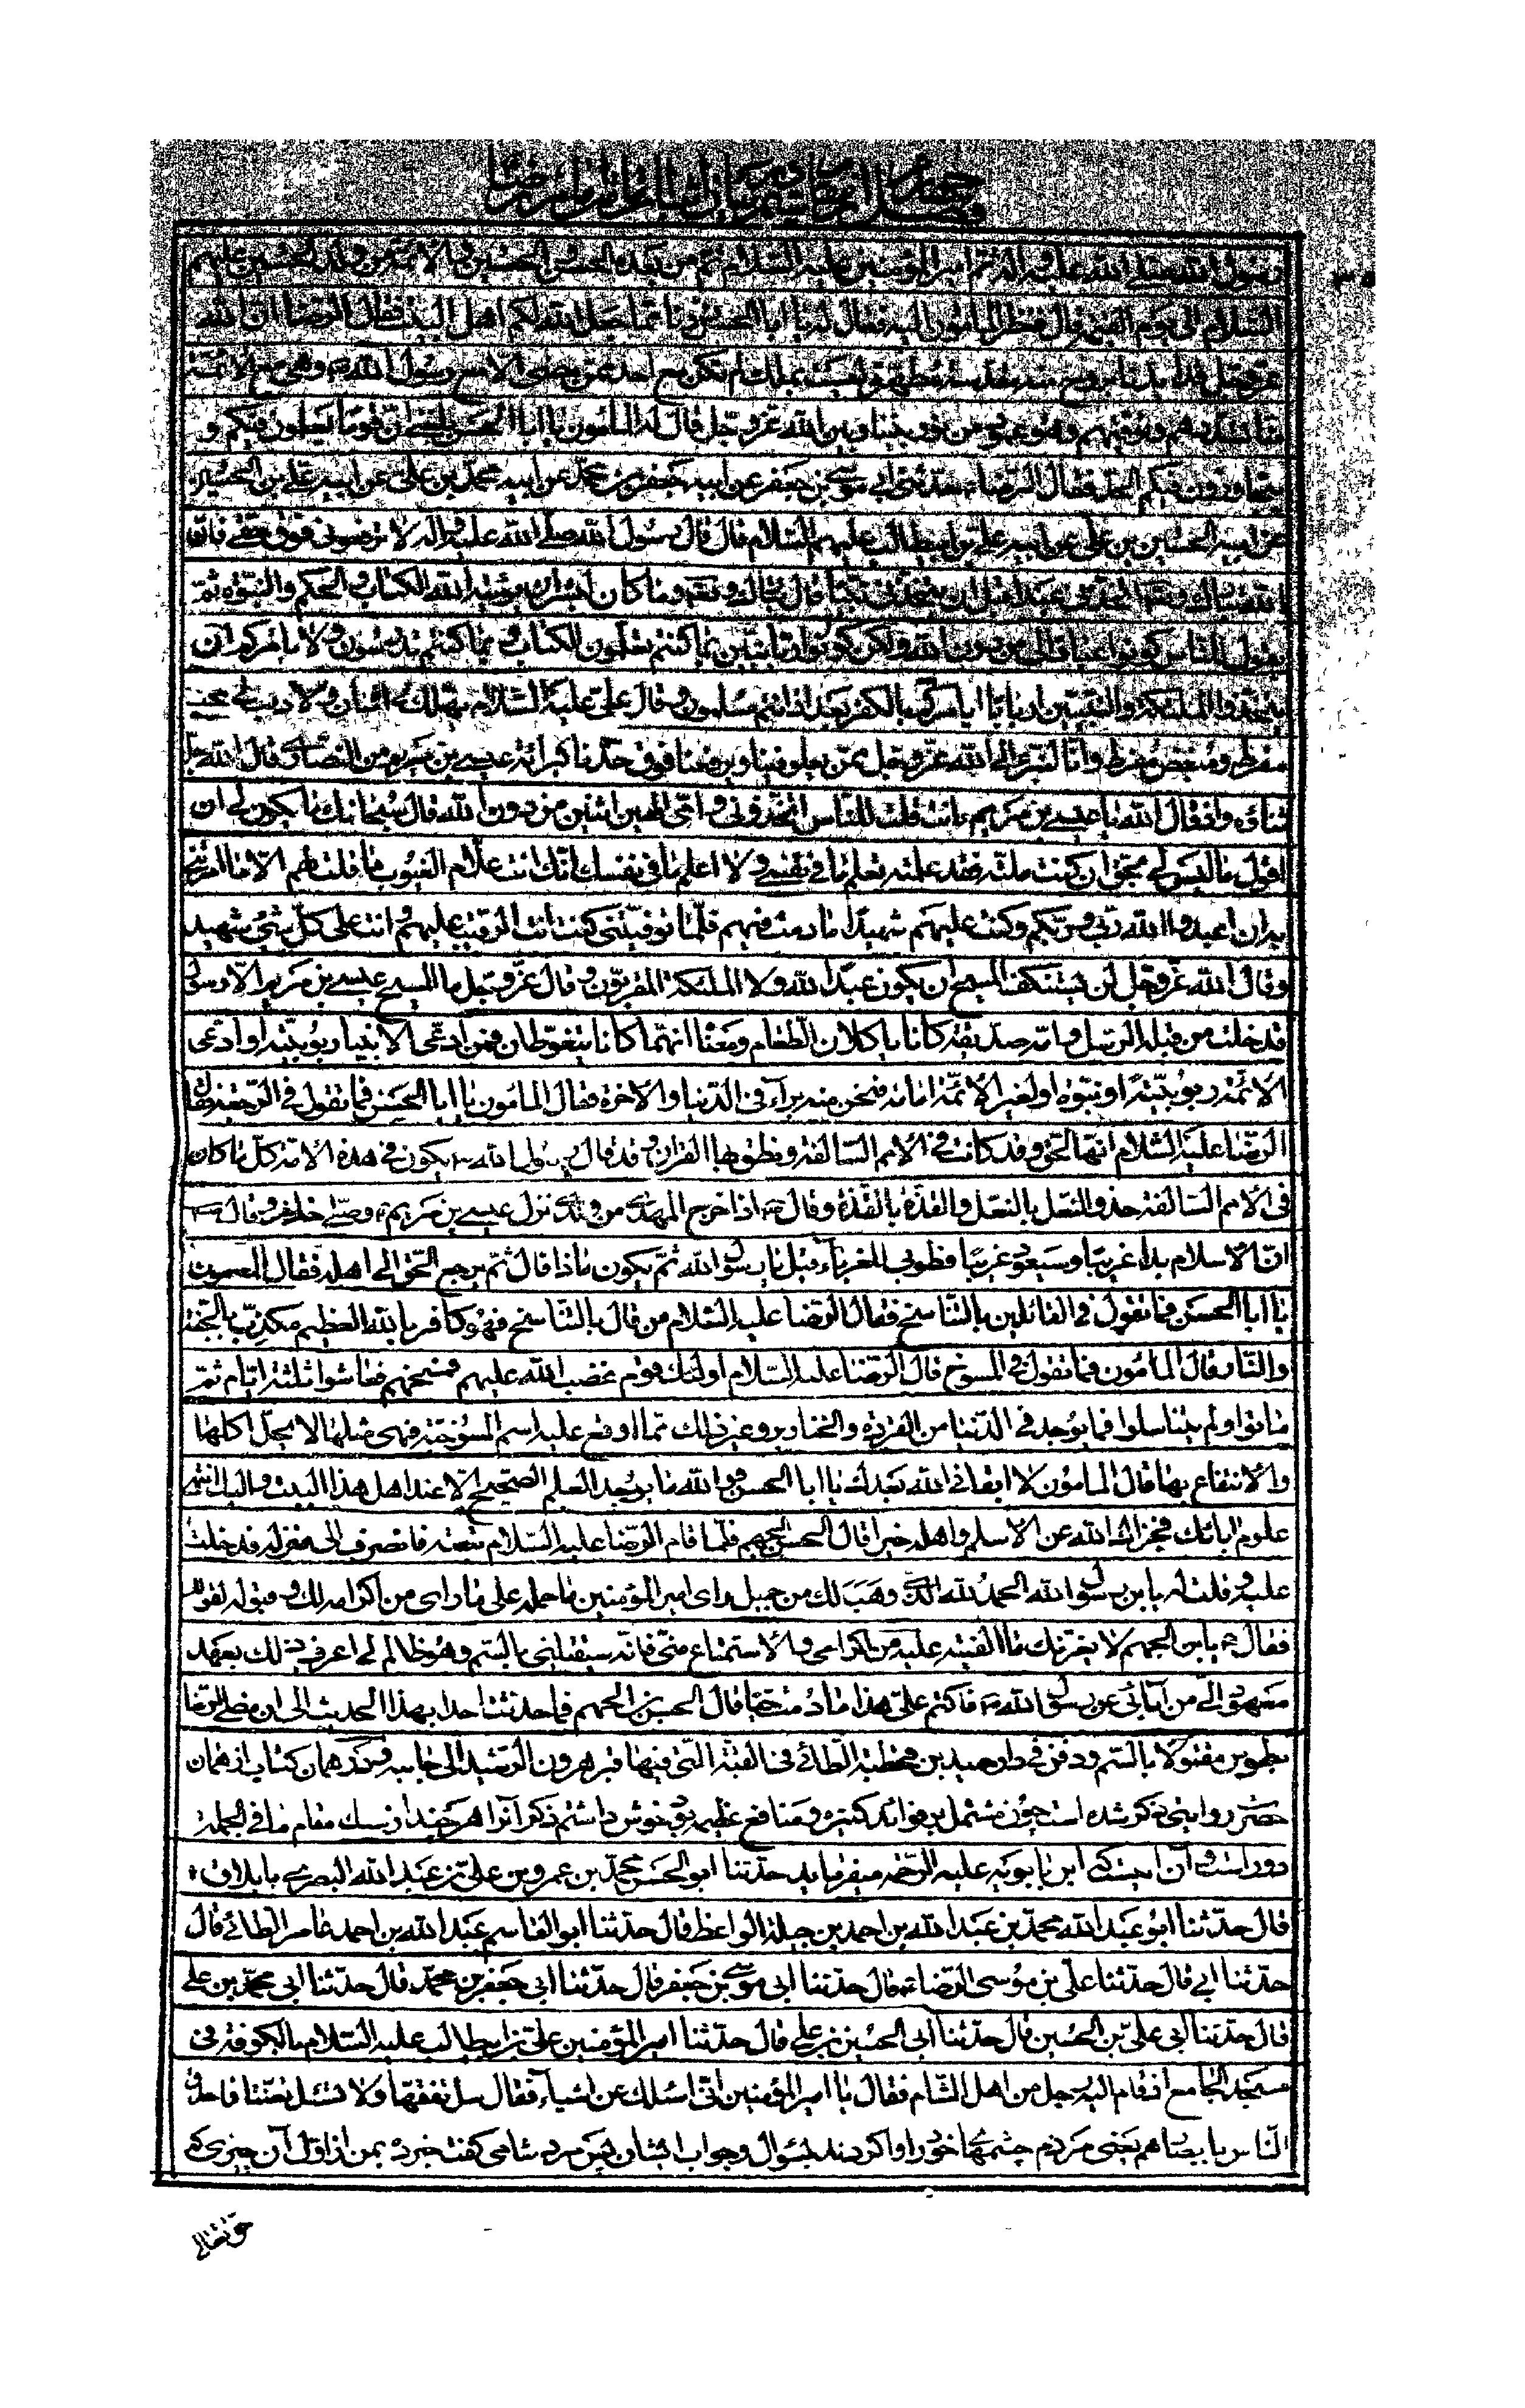 رسول الله صلى الله عليه وآله ثم امير المؤمنين عليه السلام ثم من بعده الحسن والحسين والائمة من ولد الحسين عليهم
السلام الى يوم القيمة قال فنظر المأمون اليه فقال له يا ابا الحسن وما جعل الله لكم اهل البيت فقال الرضا ان الله
عز وجل قد ايدنا بروح منه مقدسة مطهرة ليست بملك لم تكن مع احد ممن مضى الا مع رسول الله ص وهى مع الائمة
منا تسددهم وتوفقهم وهو عمود من نور بيننا وبين الله عز وجل قال له المأمون يا ابا الحسن بلغنى ان قوما يغلون فيكم و
يتجاوزون فيكم الحد فقال الرضا ع حدثنى ابى موسى بن جعفر عن ابيه جعفر بن محمد عن ابيه محمد بن على عن ابيه على بن الحسين
عن ابيه الحسين بن على عن ابيه على بن ابيطالب عليهم السلام قال قال رسول الله صلى الله عليه واله لا ترفعونى فوق حقى فان
الله تبارك وتعالى اتخذنى عبدا قبل ان يتخذنى نبيا قال الله تبارك وتعالى وما كان لبشر ان يؤتيه الله الكتاب والحكم والنبوة ثم
يقول للناس كونوا عبادا لى من دون الله ولكن كونوا ربانيين بما كنتم تعلمون الكتاب وبما كنتم تدرسون ولا يأمركم ان
تتخذوا الملئكة والنبيين اربابا ايأمركم بالكفر بعد اذ انتم مسلمون وقال على عليه السلام يهلك فى اثنان ولا ذنب لى محب
مفرط ومبغض مفرط وانا لنبرء الى الله عز وجل ممن يغلو فينا ويرفعنا فوق حدنا كبرائة عيسى بن مريم من النصارى قال الله جل
ثناؤه واذ قال الله يا عيسى بن مريم ءانت قلت للناس اتخذونى وامى الهين اثنين من دون الله قال سبحانك ما يكون لى ان
اقول ما ليس لى بحق ان كنت قلته فقد علمته تعلم ما فى نفسى ولا اعلم ما فى نفسك انك انت علام الغيوب ما قلت لهم الا ما امرتنى
به ان اعبدوا الله ربى وربكم وكنت عليهم شهيدا ما دمت فيهم فلما توفيتنى كنت انت الرقيب عليهم وانت على كل شئ شهيد
وقال الله عز وجل لن يستنكف المسيح ان يكون عبدا لله ولا الملئكة المقربون وقال عز وجل ما المسيح عيسى بن مريم الا رسول
قد خلت من قبله الرسل وامه صديقة كانا ياكلان الطعام ومعناه انهما كانا يتغوطان فمن ادعى الانبياء ربوبية او ادعى
الائمة ربوبية او نبوة او لغير الائمة امامة فنحن منه برآء فى الدنيا والاخرة فقال المأمون يا ابا الحسن فما تقول فى الرجعة فقال
الرضا عليه السلام انها الحق وقد كانت فى الامم السالفة ونطق بها القران وقد قال رسول الله ص يكون فى هذه الامة كل ما كان
فى الامم السالفة حذو النعل بالنعل والقذة بالقذة وقال ص اذا خرج المهدى من ولدى نزل عيسى بن مريم ع وصلى خلفه وقال ص
ان الاسلام بدا غريبا وسيعود غريبا فطوبى للغرباء قيل يا رسول الله ثم يكون ماذا قال ثم يرجع الحق الى اهله فقال المأمون
يا ابا الحسن فما تقول فى القائلين بالتناسخ فقال الرضا عليه السلام من قال بالتناسخ فهو كافر بالله العظيم مكذب بالجنة
والنار قال المأمون فما تقول فى المسوخ قال الرضا عليه السلام اولئك قوم غضب الله عليهم فمسخهم فعاشوا ثلثة ايام ثم
ماتوا ولم يتناسلوا فما يوجد فى الدنيا من القردة والخنازير وغير ذلك مما اوقع عليه اسم المسوخية فهى مثلها لا يحل اكلها
والانتفاع بها قال المأمون لا ابقانى الله بعدك يا ابا الحسن فوالله ما يوجد العلم الصحيح الا عند اهل هذا البيت واليك انتهى
علوم ابائك فجزاك الله عن الاسلام واهله خيرا قال الحسن بن الجهم فلما قام الرضا عليه السلام تبعته فانصرف الى منزله فدخلت
عليه وقلت له يا بن رسول الله الحمد لله الذى وهب لك من جميل راى امير المؤمنين ما حمله على ما ارى من اكرامه لك وقبوله لقولك
فقال ع يا بن الجهم لا يغرنك ما الفيته عليه من اكرامى والاستماع منى فانه سيقتلنى بالسم وهو ظالم لى اعرف ذلك بعهد
معهود الى من آبائى عن رسول الله ص فاكتم على هذا ما دمت حيا قال الحسن بن الجهم فما حدثت احدا بهذا الحديث الى ان مضى الرضا
بطوس مقتولا بالسم ودفن فى دار حميد بن قحطبة الطائى فى القبة التى فيها قبر هرون الرشيد الى جانبه و نيز در همان كتاب از همان
حضرت روايتى ذكر شده است چون مشتمل بر فوائد كثيره ومنافع عظيمه بود خوش داشتم ذكر آنرا هر چند از نسك مقام ما فى الجمله
دور است و آن اينست كه ابن بابويه عليه الرحمه ميفرمايد حدثنا ابو الحسن محمد بن عمرو بن على بن عبد الله البصرى بايلاق
قال حدثنا ابو عبد الله محمد بن عبد الله بن احمد بن جبلة الواعظ قال حدثنا ابو القاسم عبد الله بن احمد عامر الطائى قال
حدثنا ابى قال حدثنا على بن موسى الرضا ع قال حدثنا ابى موسى بن جعفر قال حدثنا ابى جعفر بن محمد قال حدثنا ابى محمد بن على
قال حدثنا ابى على بن الحسين قال حدثنا ابى الحسين بن على قال حدثنا امير المؤمنين على بن ابيطالب عليه السلام بالكوفة فى
مسجد الجامع اذ قام اليه رجل من اهل الشام فقال يا امير المؤمنين انى اسئلك عن اشياء فقال سل تفقها ولا تسئل تعنتا فاحدق
الناس بابصارهم يعنى مردم چشمهاى خود را وا كردند بسؤال وجواب ايشان پس مرد شامى گفت خبر ده بمن از اول آن چيزى كه
حق تعالى